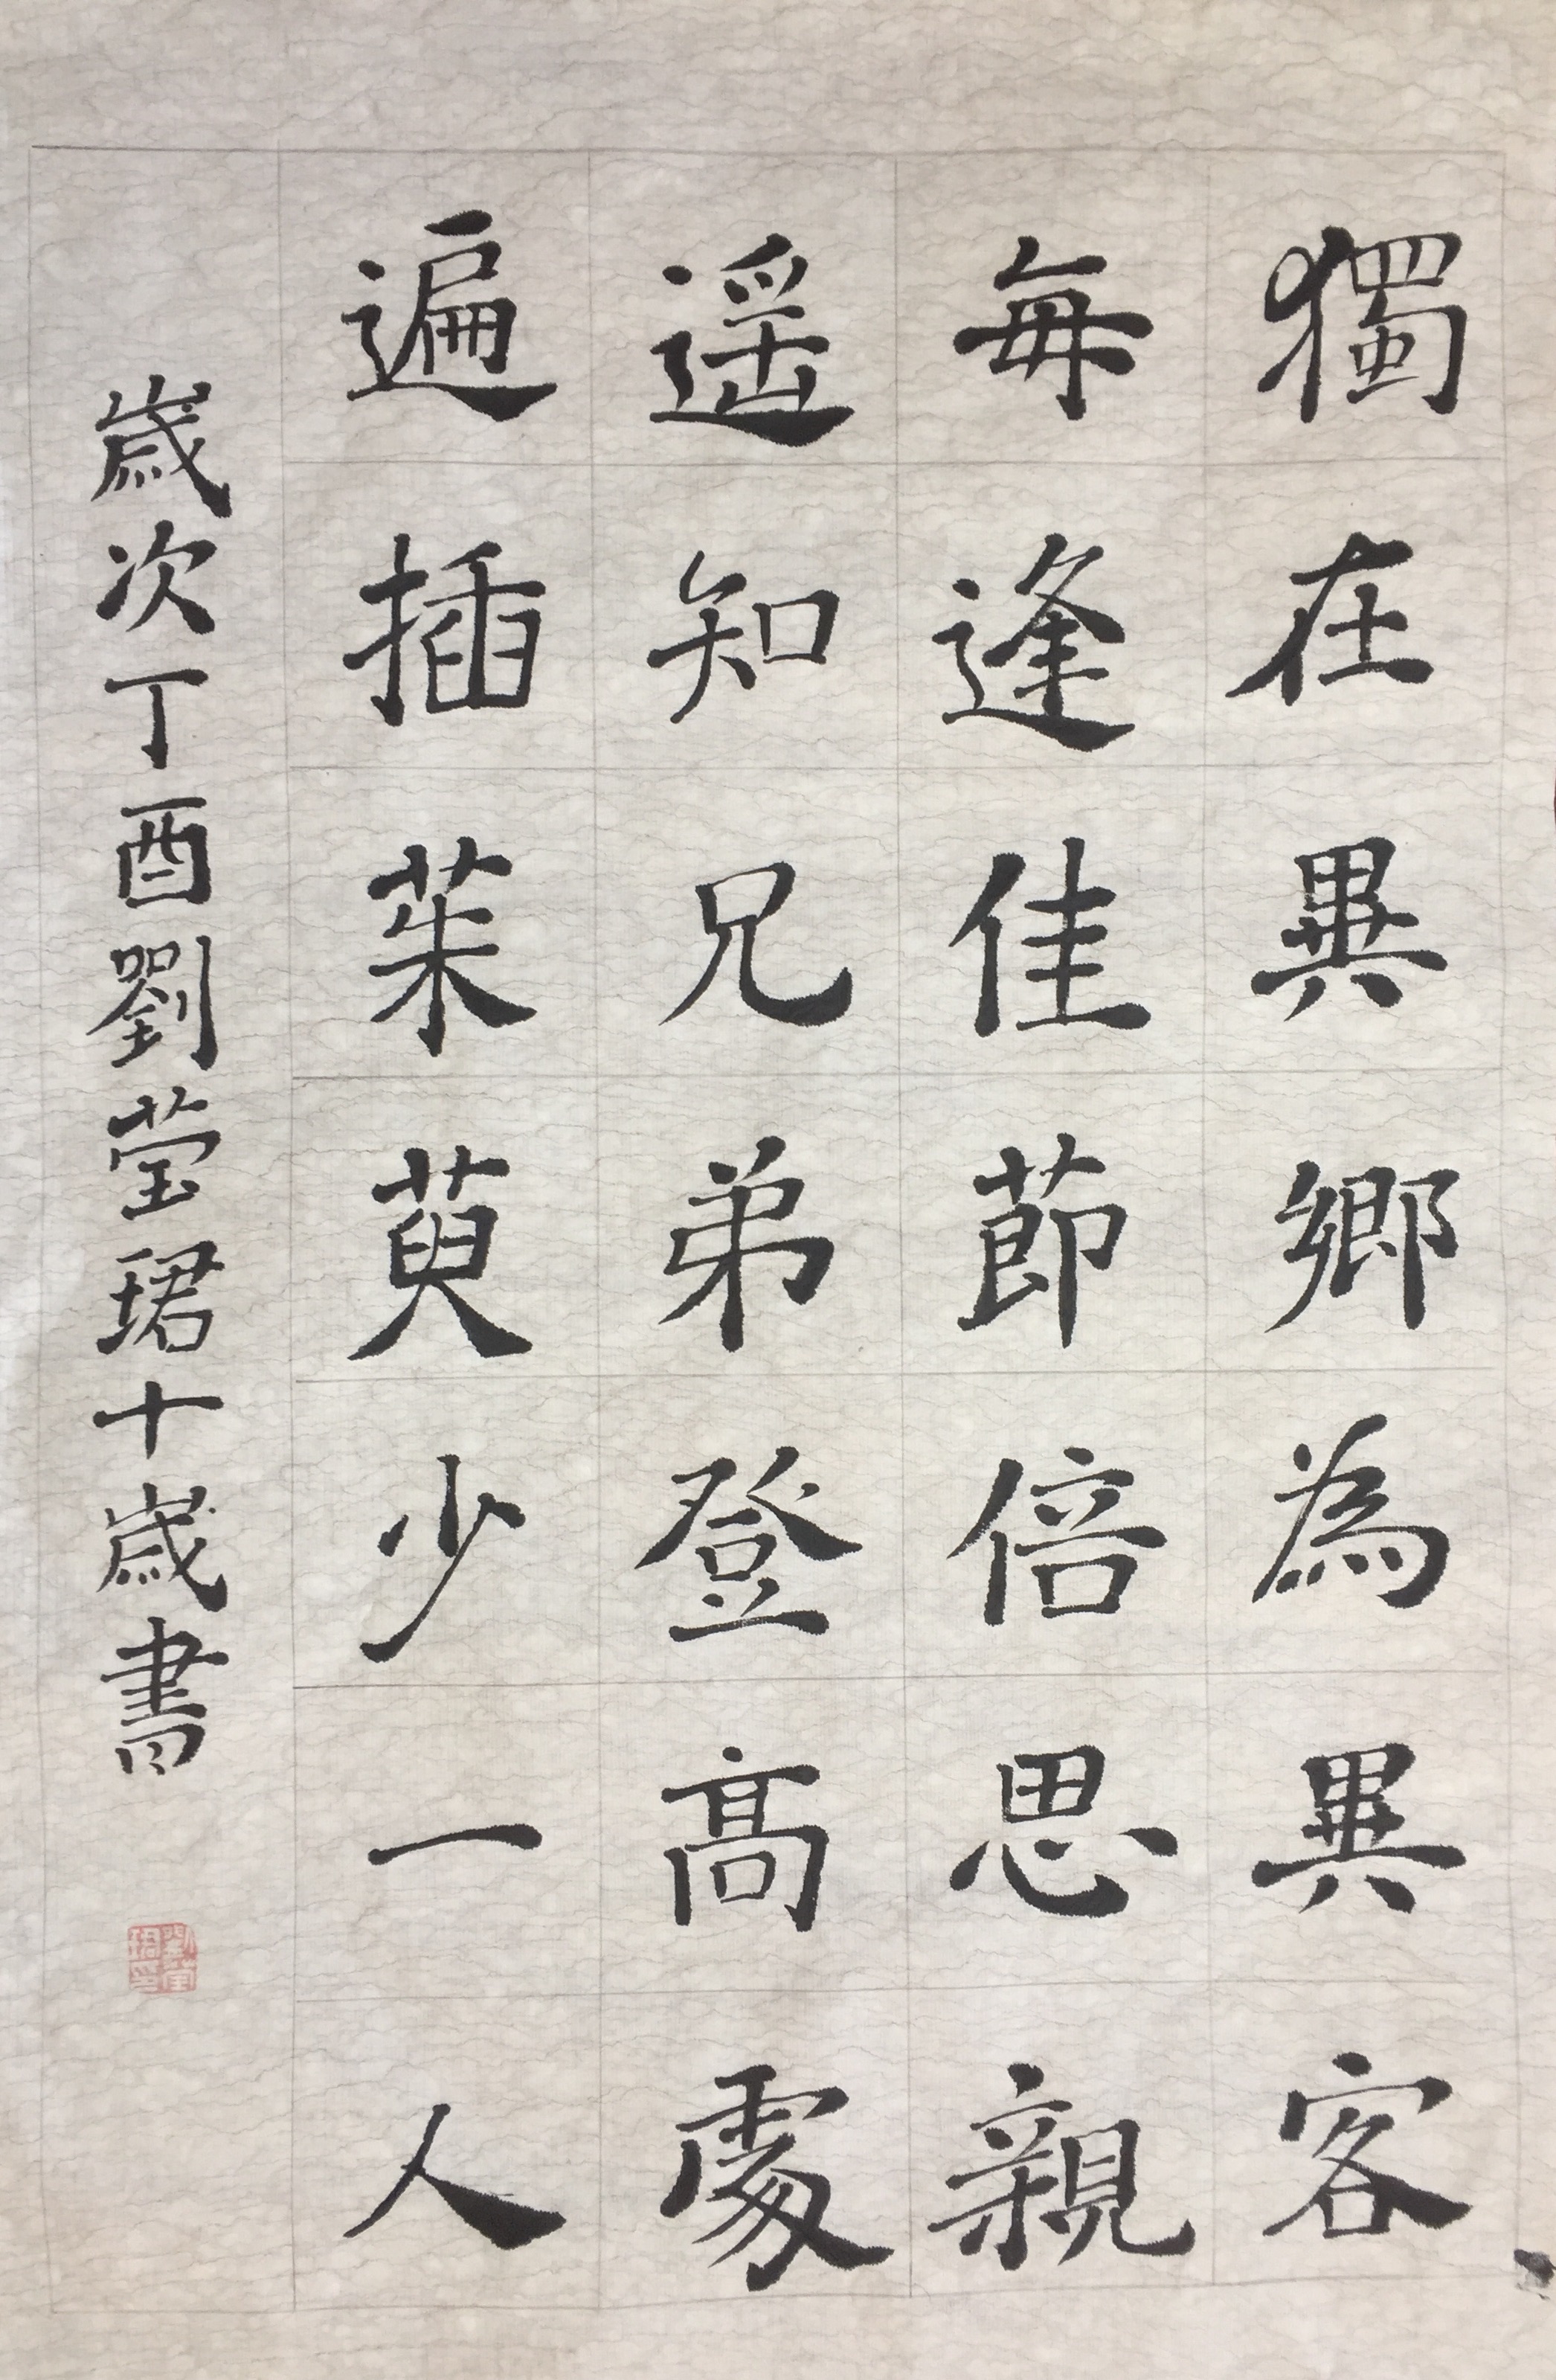 獨在異鄉為異客
每逢佳節倍思親
遥知兄弟登高處
遍插茱萸少一人
歲次丁酉劉莹珺十歲書